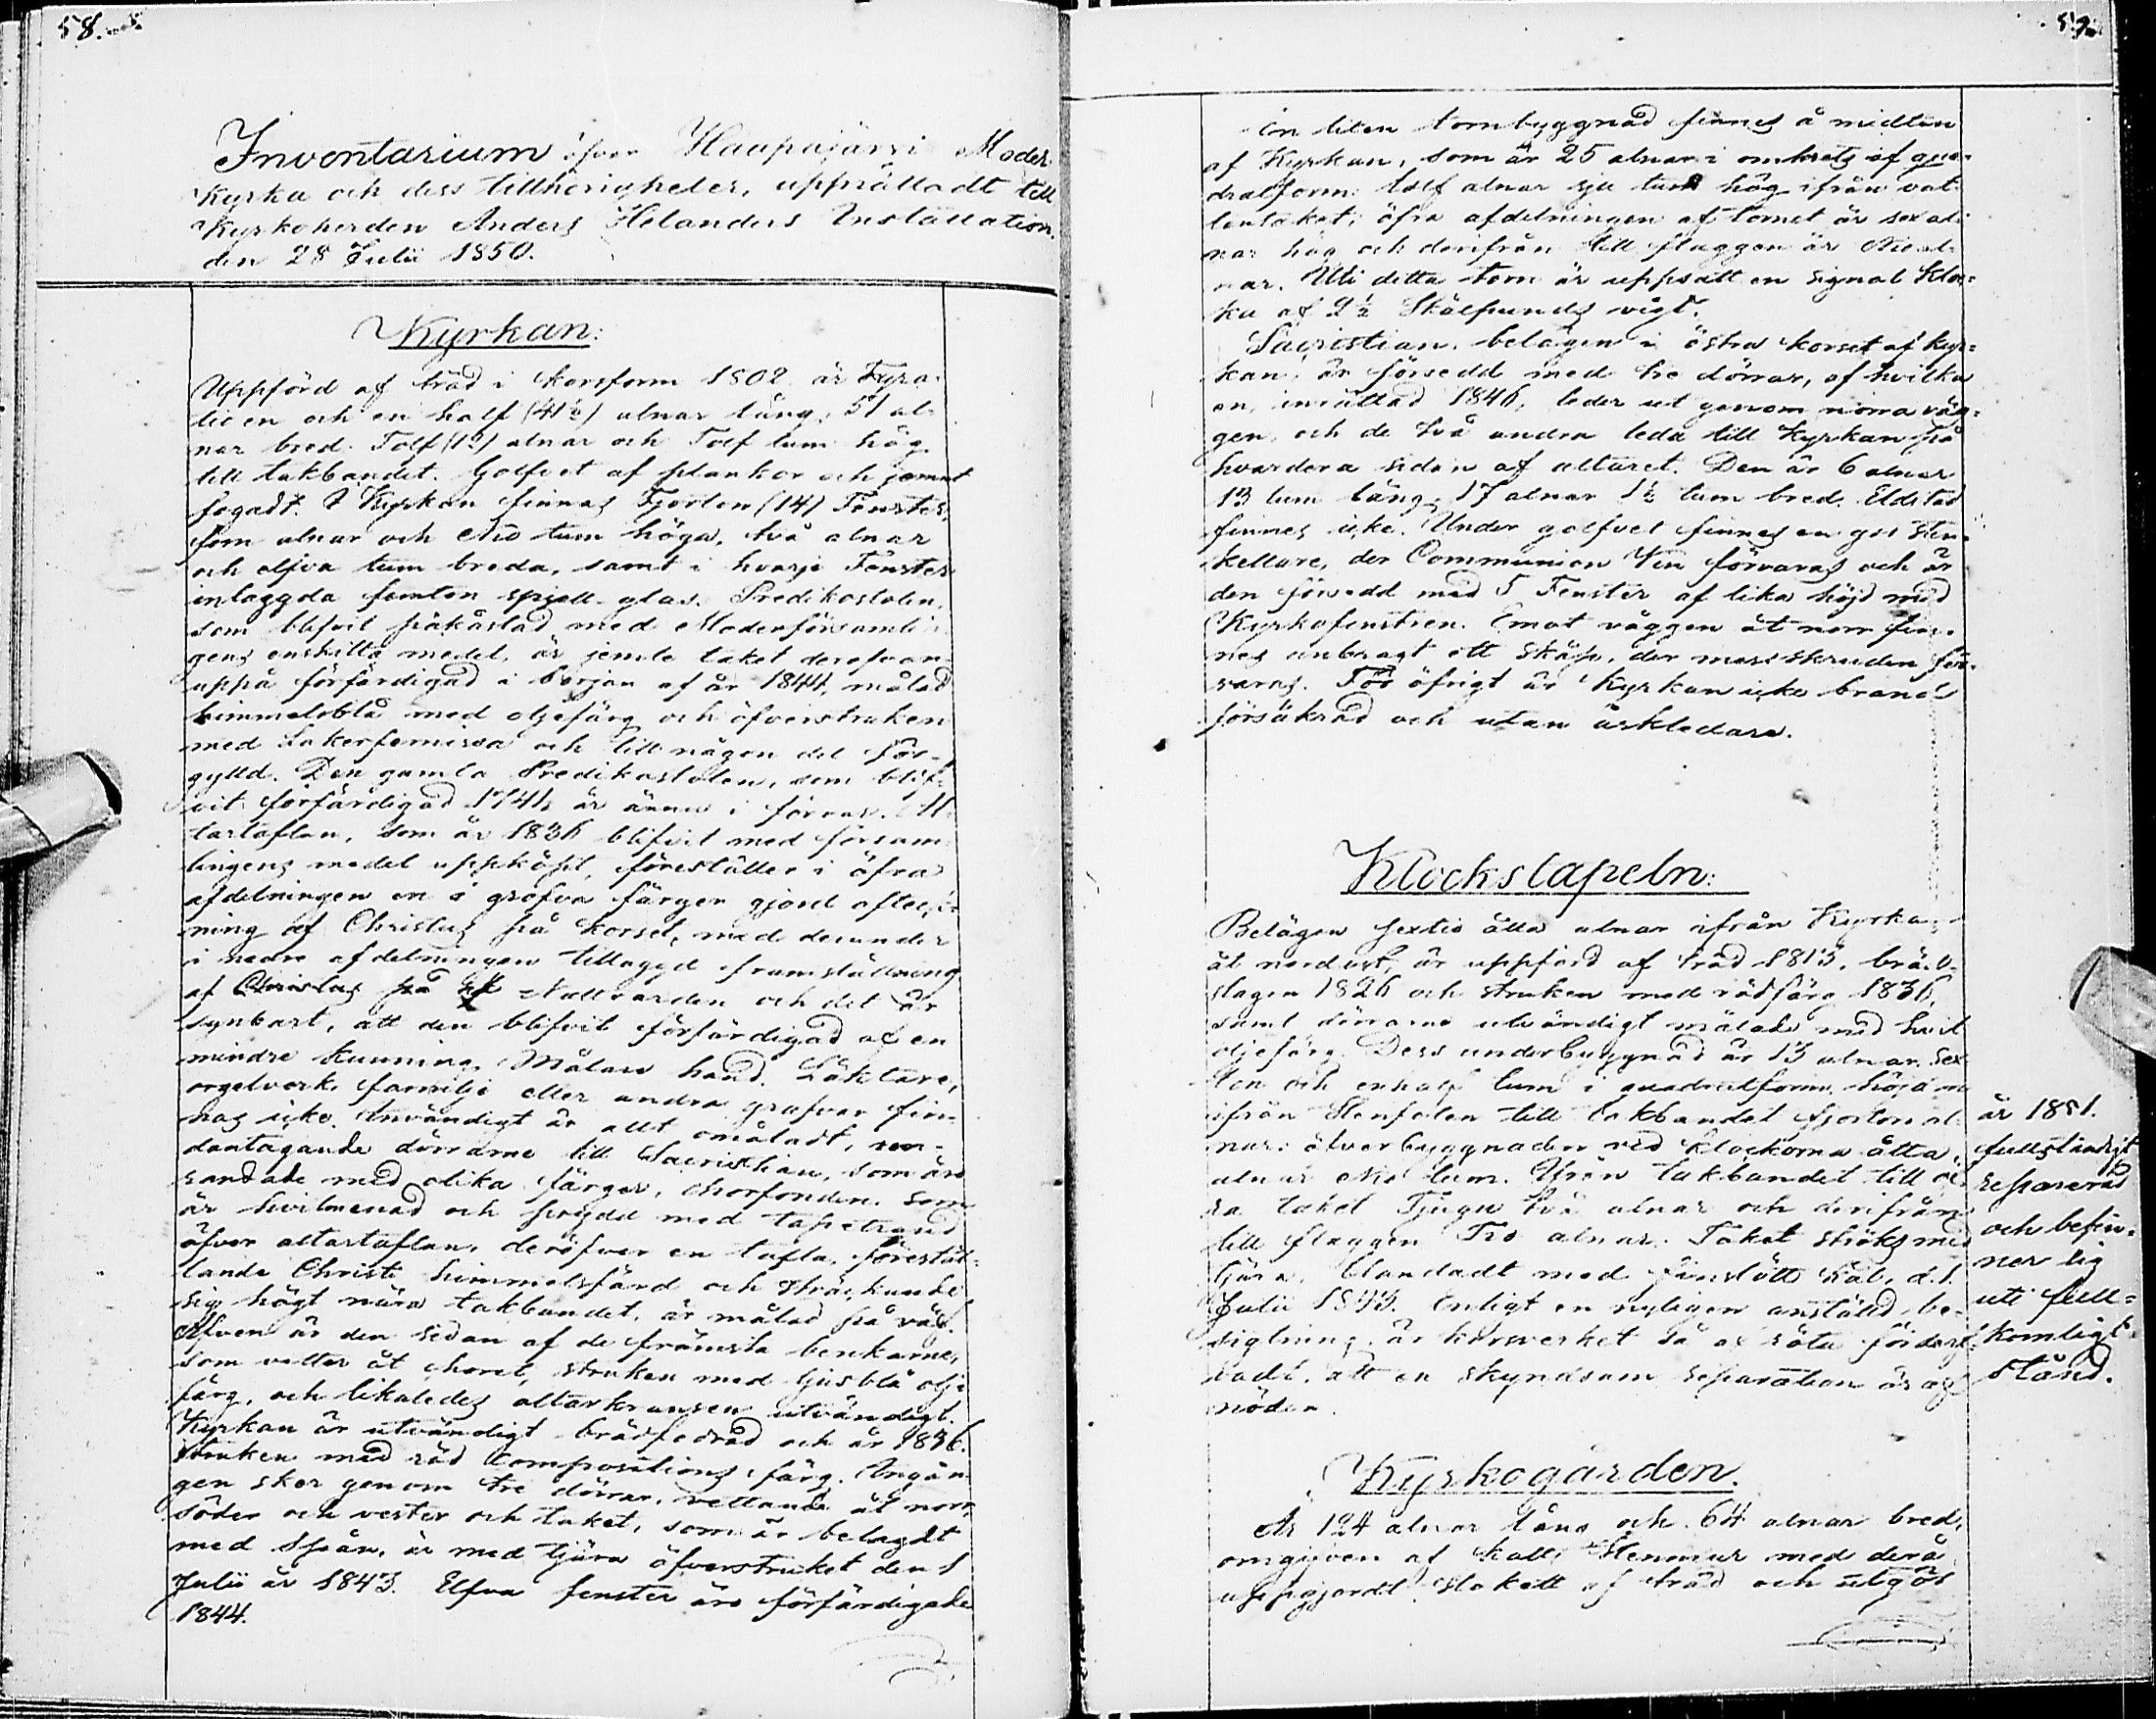 58.
Inventarium öfver Haapajärvi Moder
Kyrka och dess tillhörigheter, upprättadt till
Kyrkoherden Anders Helanders Installation.
den 28 Julii 1850.
Kyrkan:
Uppförd af träd i korsform 1802 är Fyra
tio en och en half (41½) alnar lång, 51 al-
nar bred. Tolf (12) alnar och Tolf tum hög
till takbandet. Golfvet af plankor och jemnt
fogadt. I Kyrkan finnas Fjorton (14) Fenster,
fem alnar och Nio tum höga, två alnar
och elfva tum breda, samt i hvarje Fenster
inlaggda femton spjell-glas. Predikostolen,
som blifvit påkåstad med Moderförsamlin-
gens enskilta medel, är jemte taket derofvan
uppå förfärdigad i början af år 1844, målad
himmelsblå med oljefärg och öfverstruken
med Lakerfernissa och till någon del för-
gylld. Den gamla Predikostolen, som blif-
vit förfärdigad 1741, är ännu i förvar. Al-
tartaflan, som år 1836 blifvit med försam-
lingens medel uppköpt, föreställer i öfra
afdelningen en i grofva färger gjord
ning af Christus på korset, med derunder
i nedre afdelningen tillaggd framställning
af Christus på Nattvarden och det är
synbart, att den blifvit förfärdigad af en
mindre kunnig Målare hand. Läktare,
orgelverk, familje eller andra grafvar fin-
nas icke. Invändigt är allt omåladt, un-
dantagande dörrarne till Sacristian, som äro
randade med olika färger, chorfonden som
är hvitmenad och prydd med tapetrand
öfver altartaflan, deröfver en tafla, förestäl-
lande Christi himmelsfärd och sträckande
sig högt nära takbandet, är målad på väg.
Äfven är den sidan af de främsta benkarne,
som vetter åt choret, struken med ljusblå olje
färg, och likaledes altarkransen utvändigt.
Kyrkan är utvändigt brädfodrad och år 1836
struken med röd compositions färg. Ingån-
gen sker genom tre dörrar, vettande åt norr,
söder och vester och taket, som är belagdt
med Spån, är med tjära öfverstruket den 1
Julii år 1843. Elfva fenster äro förfärdigade
1844.
59.
En liten tornbyggnad finnes å midten
af Kyrkan, som är 25 alnar i omkrets af qua-
dratform: tolf alnar sju tum hög ifrån vat-
tentaket; öfra afdelningen af tornet är sex al-
nar hög och derifrån till flaggen är Nie al-
nar. Uti detta torn är uppsatt en signal Kloc-
ka af 2½ Skålpunds vigt.
Sacristian, belägen i östra korset af kyr-
kan, är försedd med tre dörrar, af hvilka
en, inrättad 1846, leder ut genom norra väg-
gen, och de två andra leda till Kyrkan på
hvardera sidan af altaret. Den är 6 alnar
13 tum lång, 17 alnar 1½ tum bred. Eldstad
finnes icke. Under golfvet finnes en god sten-
kellare, der Communion Vin förvaras och är
den försedd med 5 Fenster af lika höjd med
Kyrkofenstren. Emot väggen åt norr fin-
nes anbragt ett skåp, der messskruden för-
varas. För öfrigt är Kyrkan icke brand-
försäkrad och utan åskledare.
Klockstapeln:
Belägen sextio åtta alnar ifrån Kyrkan
åt nordost, är uppförd af träd 1813, bräd-
slagen 1826 och struken med rödfärg 1836,
samt dörrarne utvändigt målade med hvit
oljefärg. Dess underbyggnad är 13 alnar, sex
ton och en half tum i quadratform, höjden
ifrån Stenfoten till takbandet fjorton al-
nar: öfverbyggnaden vid klockorna åtta
alnar Nio tum. Ifrån takbandet till öf-
ra taket Tjugu två alnar och derifrån
till flaggen Tre alnar. Taket ströks med
tjära, blandadt med finstött kål, d. 1.
Julii 1843. Enligt en nyligen anställd be-
sigtning, är korsverket så af röta förderf
vadt, att en skyndsam reparation är af
nöden.
år 1851.
fullständigt
reparerad
och befin-
ner sig
uti full-
komligt
stånd.
Kyrkogården.
Är 124 alnar lång och 64 alnar bred,
omgifven af kall Stenmur med derå
uppgjordt stakett af träd och utgör